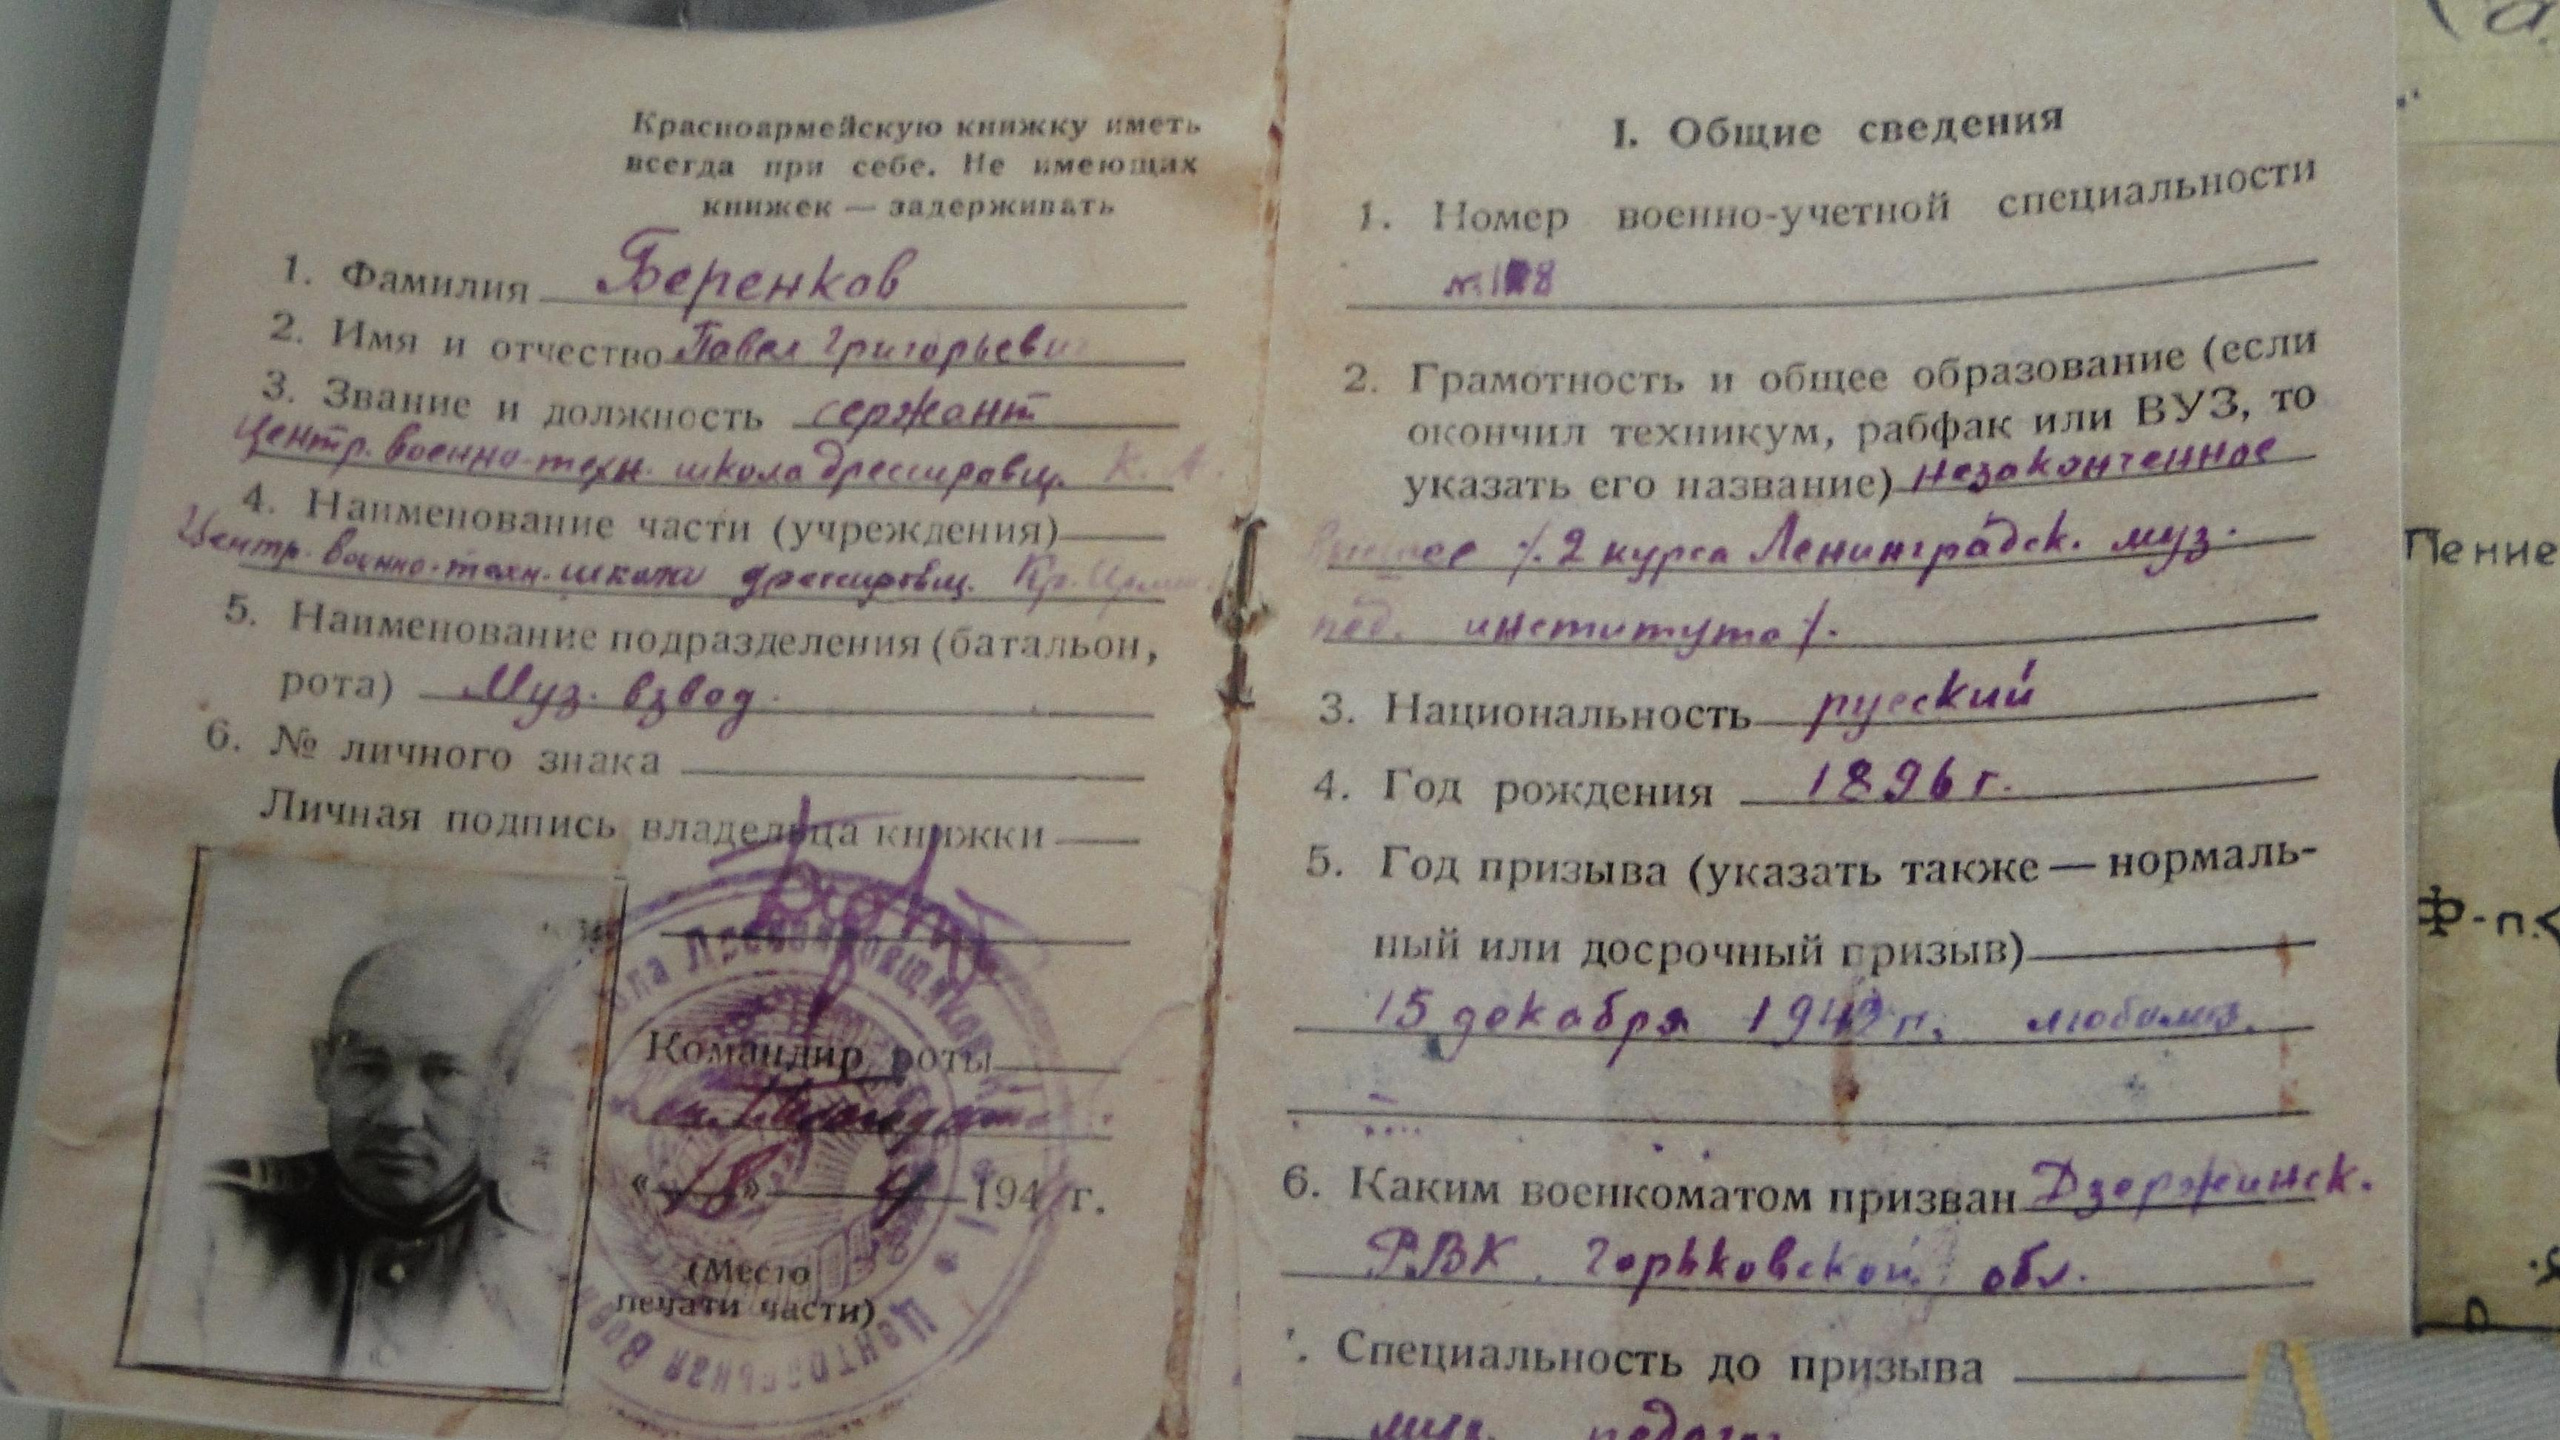 Красноармейскую книжку иметь
всегда при себе. Не имеющих
книжек — задерживать
1. Фамилия Беренков
2. Имя и отчество Павел Григорьевич
3. Звание и должность сержант
Центр. военно-техн. школа дрессировщ. К. А.
4. Наименование части (учреждения)
Центр. военно-техн. школа дрессировщ. Кр.
5. Наименование подразделения (батальон,
рота) Муз. взвод.
6. № личного знака
Личная подпись владельца книжки
Командир роты
«18» 4 194 г.
(Место
печати части)
Дрессировщиков
Центральная
I. Общие сведения
1. Номер военно-учетной специальности
2. Грамотность и общее образование (если
окончил техникум, рабфак или ВУЗ, то
указать его название) незаконченное
высшее /. 2 курса Ленинградск. муз.
пед. института /.
3. Национальность русский
4. Год рождения 1896 г.
5. Год призыва (указать также — нормаль-
ный или досрочный призыв)
15 декабря г.
6. Каким военкоматом призван Дзержинск.
РВК Горьковской обл.
. Специальность до призыва
муз. педагог
Пение
Ф-п.